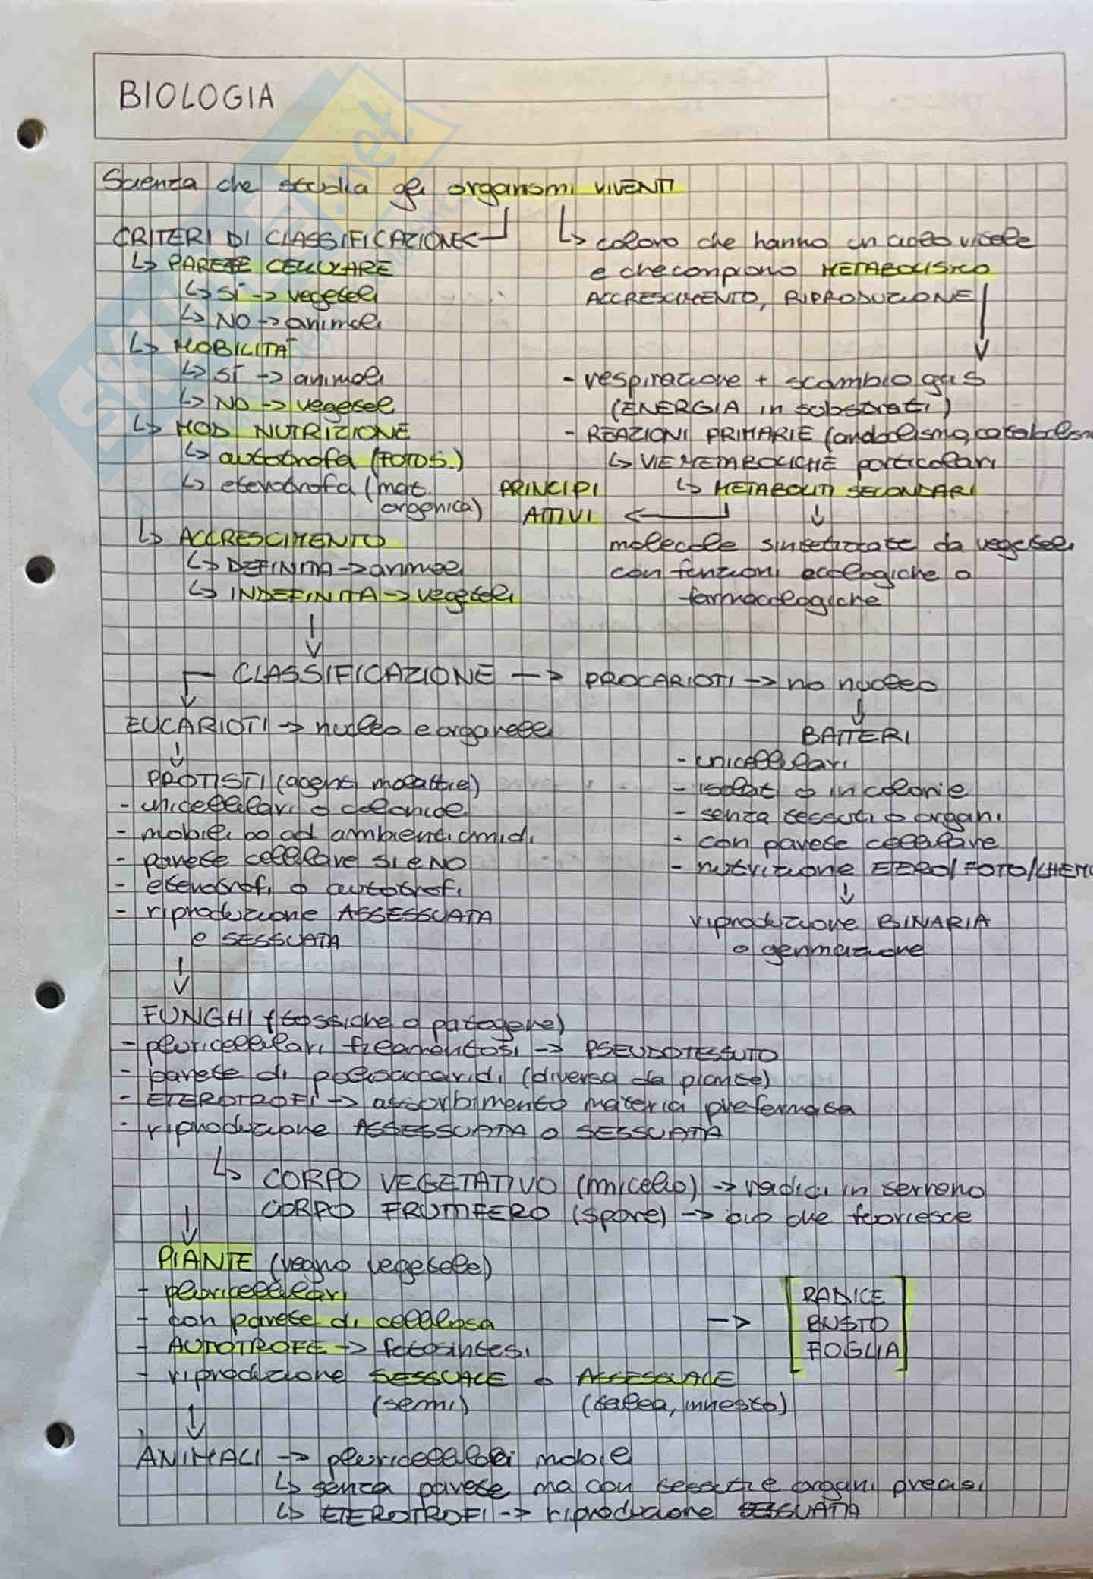 BIOLOGIA
Scienza che studia gli organismi VIVENTI
CRITERI DI CLASSIFICAZIONE
↳ coloro che hanno un ciclo vitale
e che compiono METABOLISMO
ACCRESCIMENTO, RIPRODUZIONE
↳ PARETE CELLULARE
↳ SI → vegetali
↳ NO → animali
↳ MOBILITÀ
↳ SI → animali
↳ NO → vegetali
↳ MOD NUTRIZIONE
↳ autotrofa (FOTOS.)
↳ eterotrofa (mat.
organica)
↳ ACCRESCIMENTO
↳ DEFINITA → animali
↳ INDEFINITA → vegetali
- respirazione + scambio gas
(ENERGIA in substrati)
- REAZIONI PRIMARIE (anabolismo, catabolismo
↳ VIE METABOLICHE particolari
↳ METABOLITI SECONDARI
PRINCIPI
ATTIVI
molecole sintetizzate da vegetali
con funzioni ecologiche o
farmacologiche
CLASSIFICAZIONE → PROCARIOTI → no nucleo
EUCARIOTI → nucleo e organelli
BATTERI
- unicellulari
- isolati o in colonie
- senza tessuti o organi
- con parete cellulare
- nutrizione ETERO/FOTO/CHEMO
riproduzione BINARIA
o gemmazione
PROTISTI (agenti malattie)
- unicellulari o coloniali
- mobili ad ambienti umidi
- parete cellulare SI E NO
- eterotrofi o autotrofi
- riproduzione ASSESSUATA
o SESSUATA
FUNGHI (tossiche o patogene)
- pluricellulari filamentosi → PSEUDOTESSUTO
- parete di polisaccaridi (diversa da piante)
- ETEROTROFI → assorbimento materia preformata
- riproduzione ASSESSUATA O SESSUATA
↳ CORPO VEGETATIVO (micelio) → radici in terreno
CORPO FRUTTIFERO (spore) → ciò che fuoriesce
PIANTE (regno vegetale)
- pluricellulari
- con parete di cellulosa
- AUTOTROFE → fotosintesi
- riproduzione SESSUALE o ASSESSUALE
(semi) (talea, innesto)
→ RADICE
BUSTO
FOGLIA
ANIMALI → pluricellulari mobili
↳ senza parete ma con tessuti e organi precisi
↳ ETEROTROFI → riproduzione SESSUATA